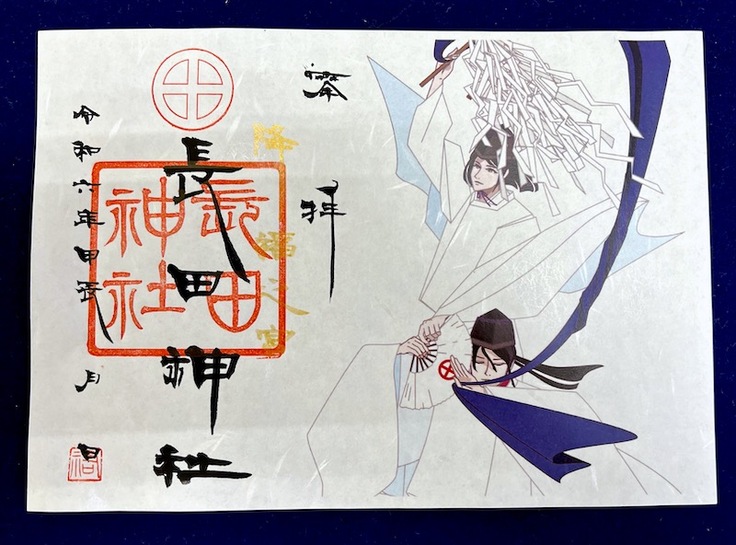 奉拝
降福之宮
長田神社
長田
神社
令和六年甲辰 月 日